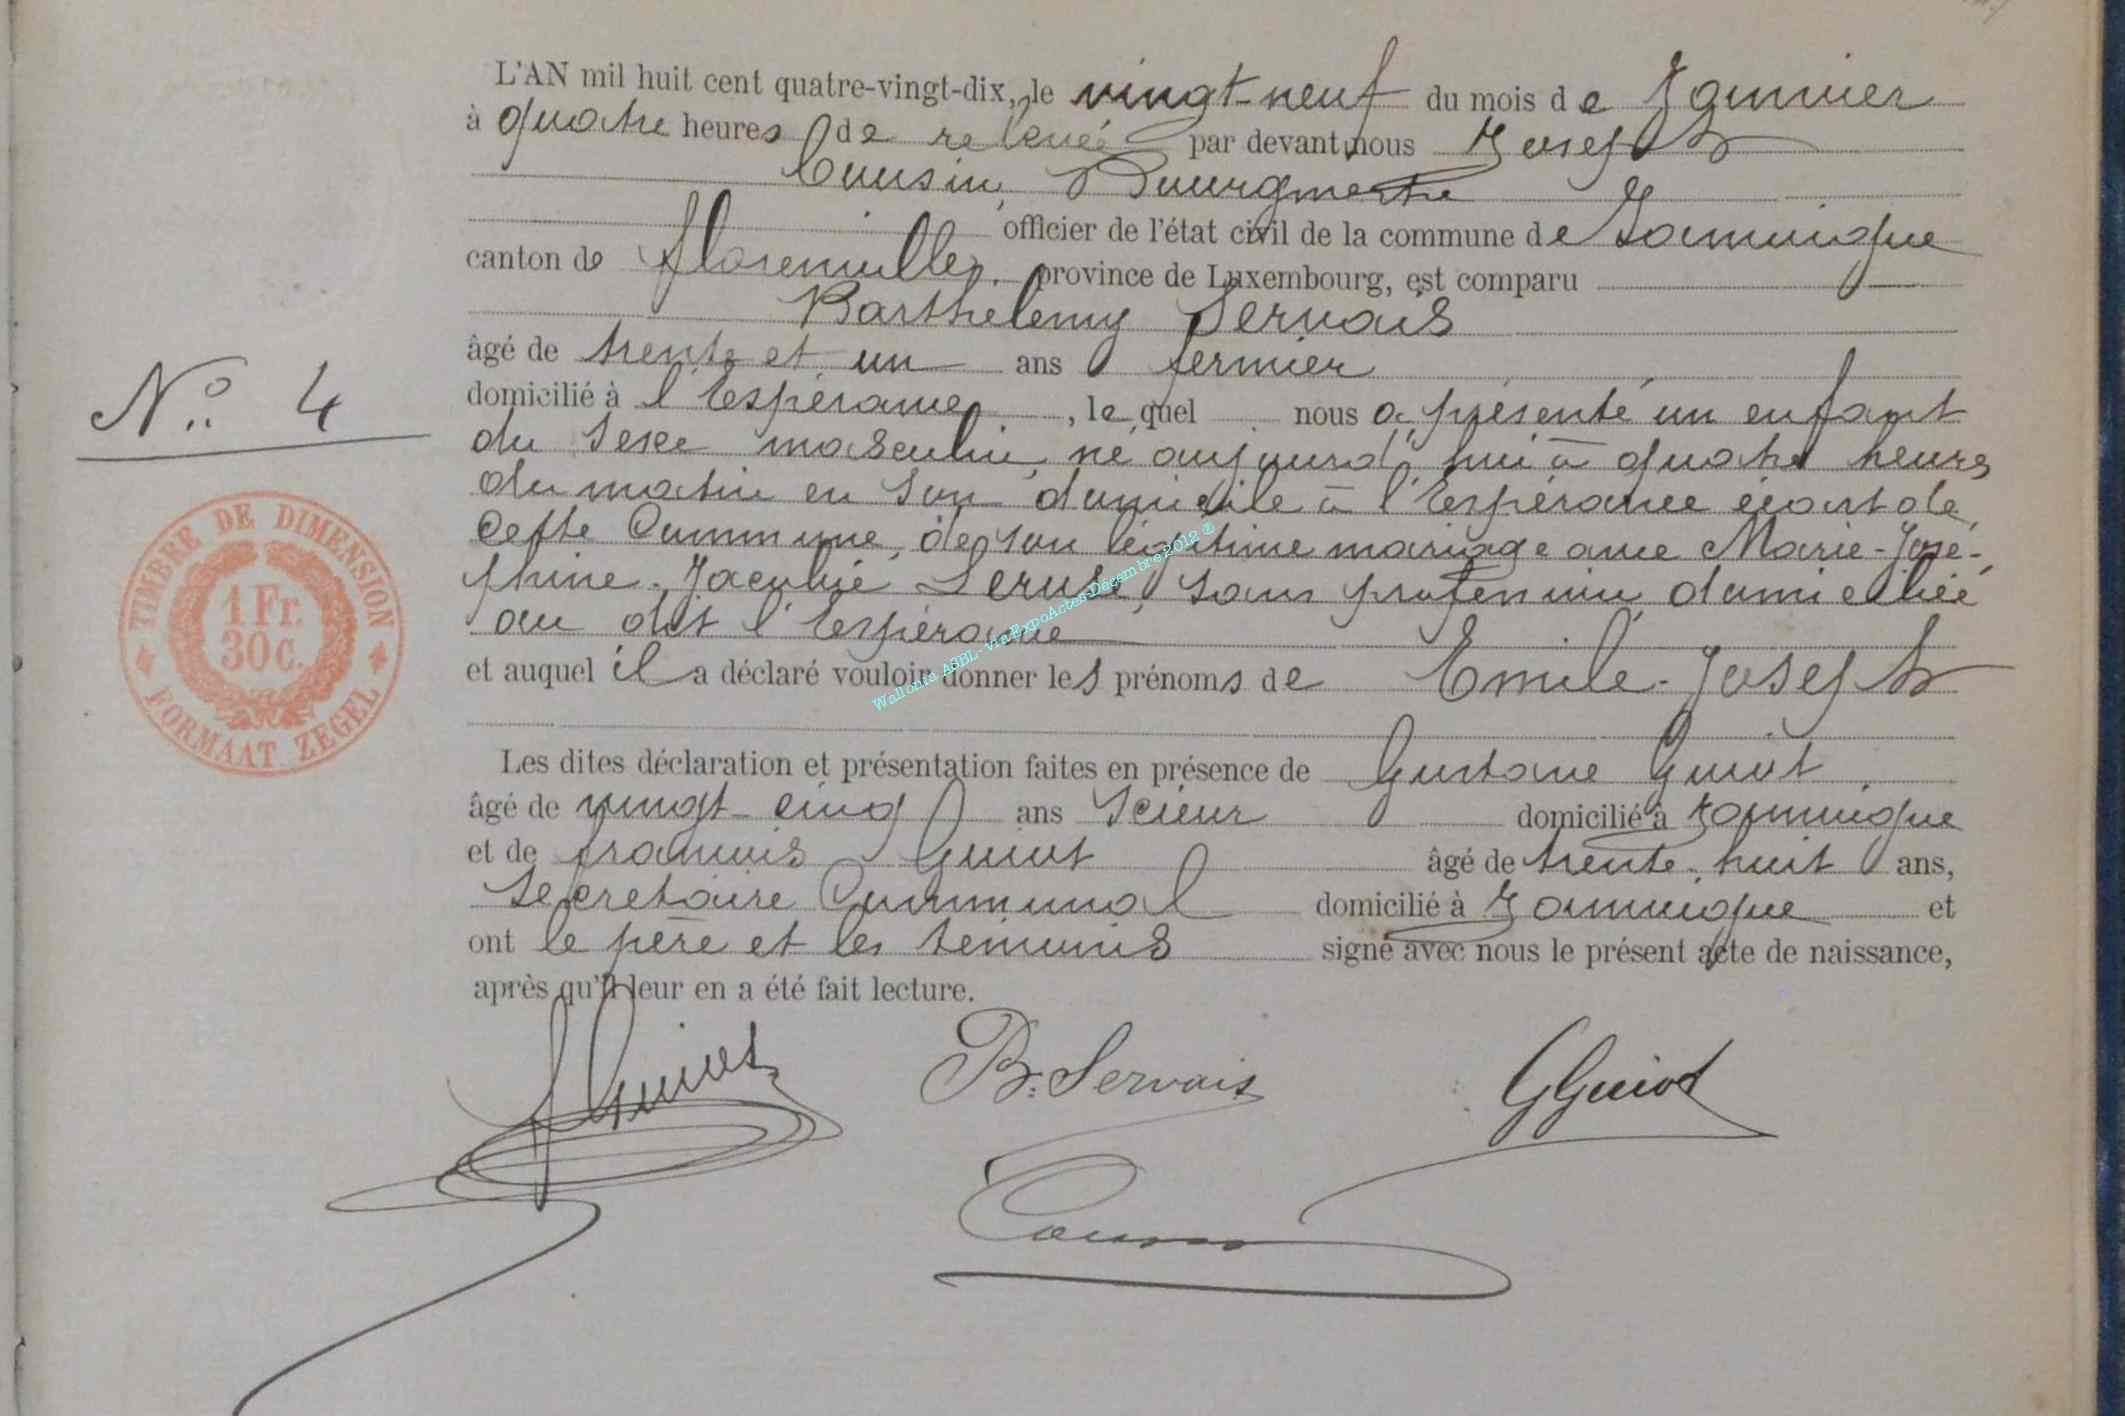 L'AN mil huit cent quatre-vingt-dix, le vingt-neuf du mois de Janvier
à quatre heures de relevée par devant nous Joseph
Cousin, Bourgmestre
officier de l'état civil de la commune de Jamoigne
canton de florenville, province de Luxembourg, est comparu
Barthélemy Servais
âgé de trente et un ans fermier
domicilié à l'Espérance, lequel nous a présenté un enfant
du sexe masculin, né aujourd'hui à quatre heures
du matin en son domicile à l'Espérance écart de
cette Commune, de son légitime mariage avec Marie-José-
phine-Jacobie Leruse, sans profession, domiciliée
au dit l'Espérance
et auquel il a déclaré vouloir donner les prénoms de Emile-Joseph
Les dites déclaration et présentation faites en présence de Gustave Guiot
âgé de vingt-cinq ans Scieur domicilié à Jamoigne
et de françois Guiot âgé de trente-huit ans,
Secrétaire Communal domicilié à Jamoigne et
ont le père et les témoins signé avec nous le présent acte de naissance,
après qu'il leur en a été fait lecture.
No. 4
TIMBRE DE DIMENSION
1 Fr.
30 C.
FORMAAT ZEGEL
Wallonie ASBL - via ExpoActes Décembre 2012 ®
f Guiot B. Servais G Guiot
Cousin